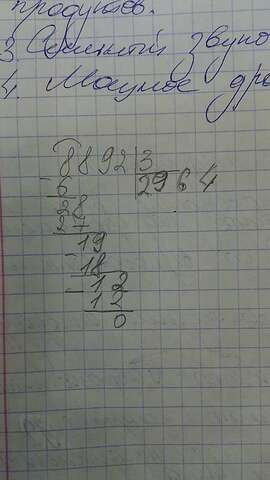 продуктов.
3. Сильный звуко
4. Мощное дре
8892 3
- 6 2964
28
27
19
- 18
12
- 12
0